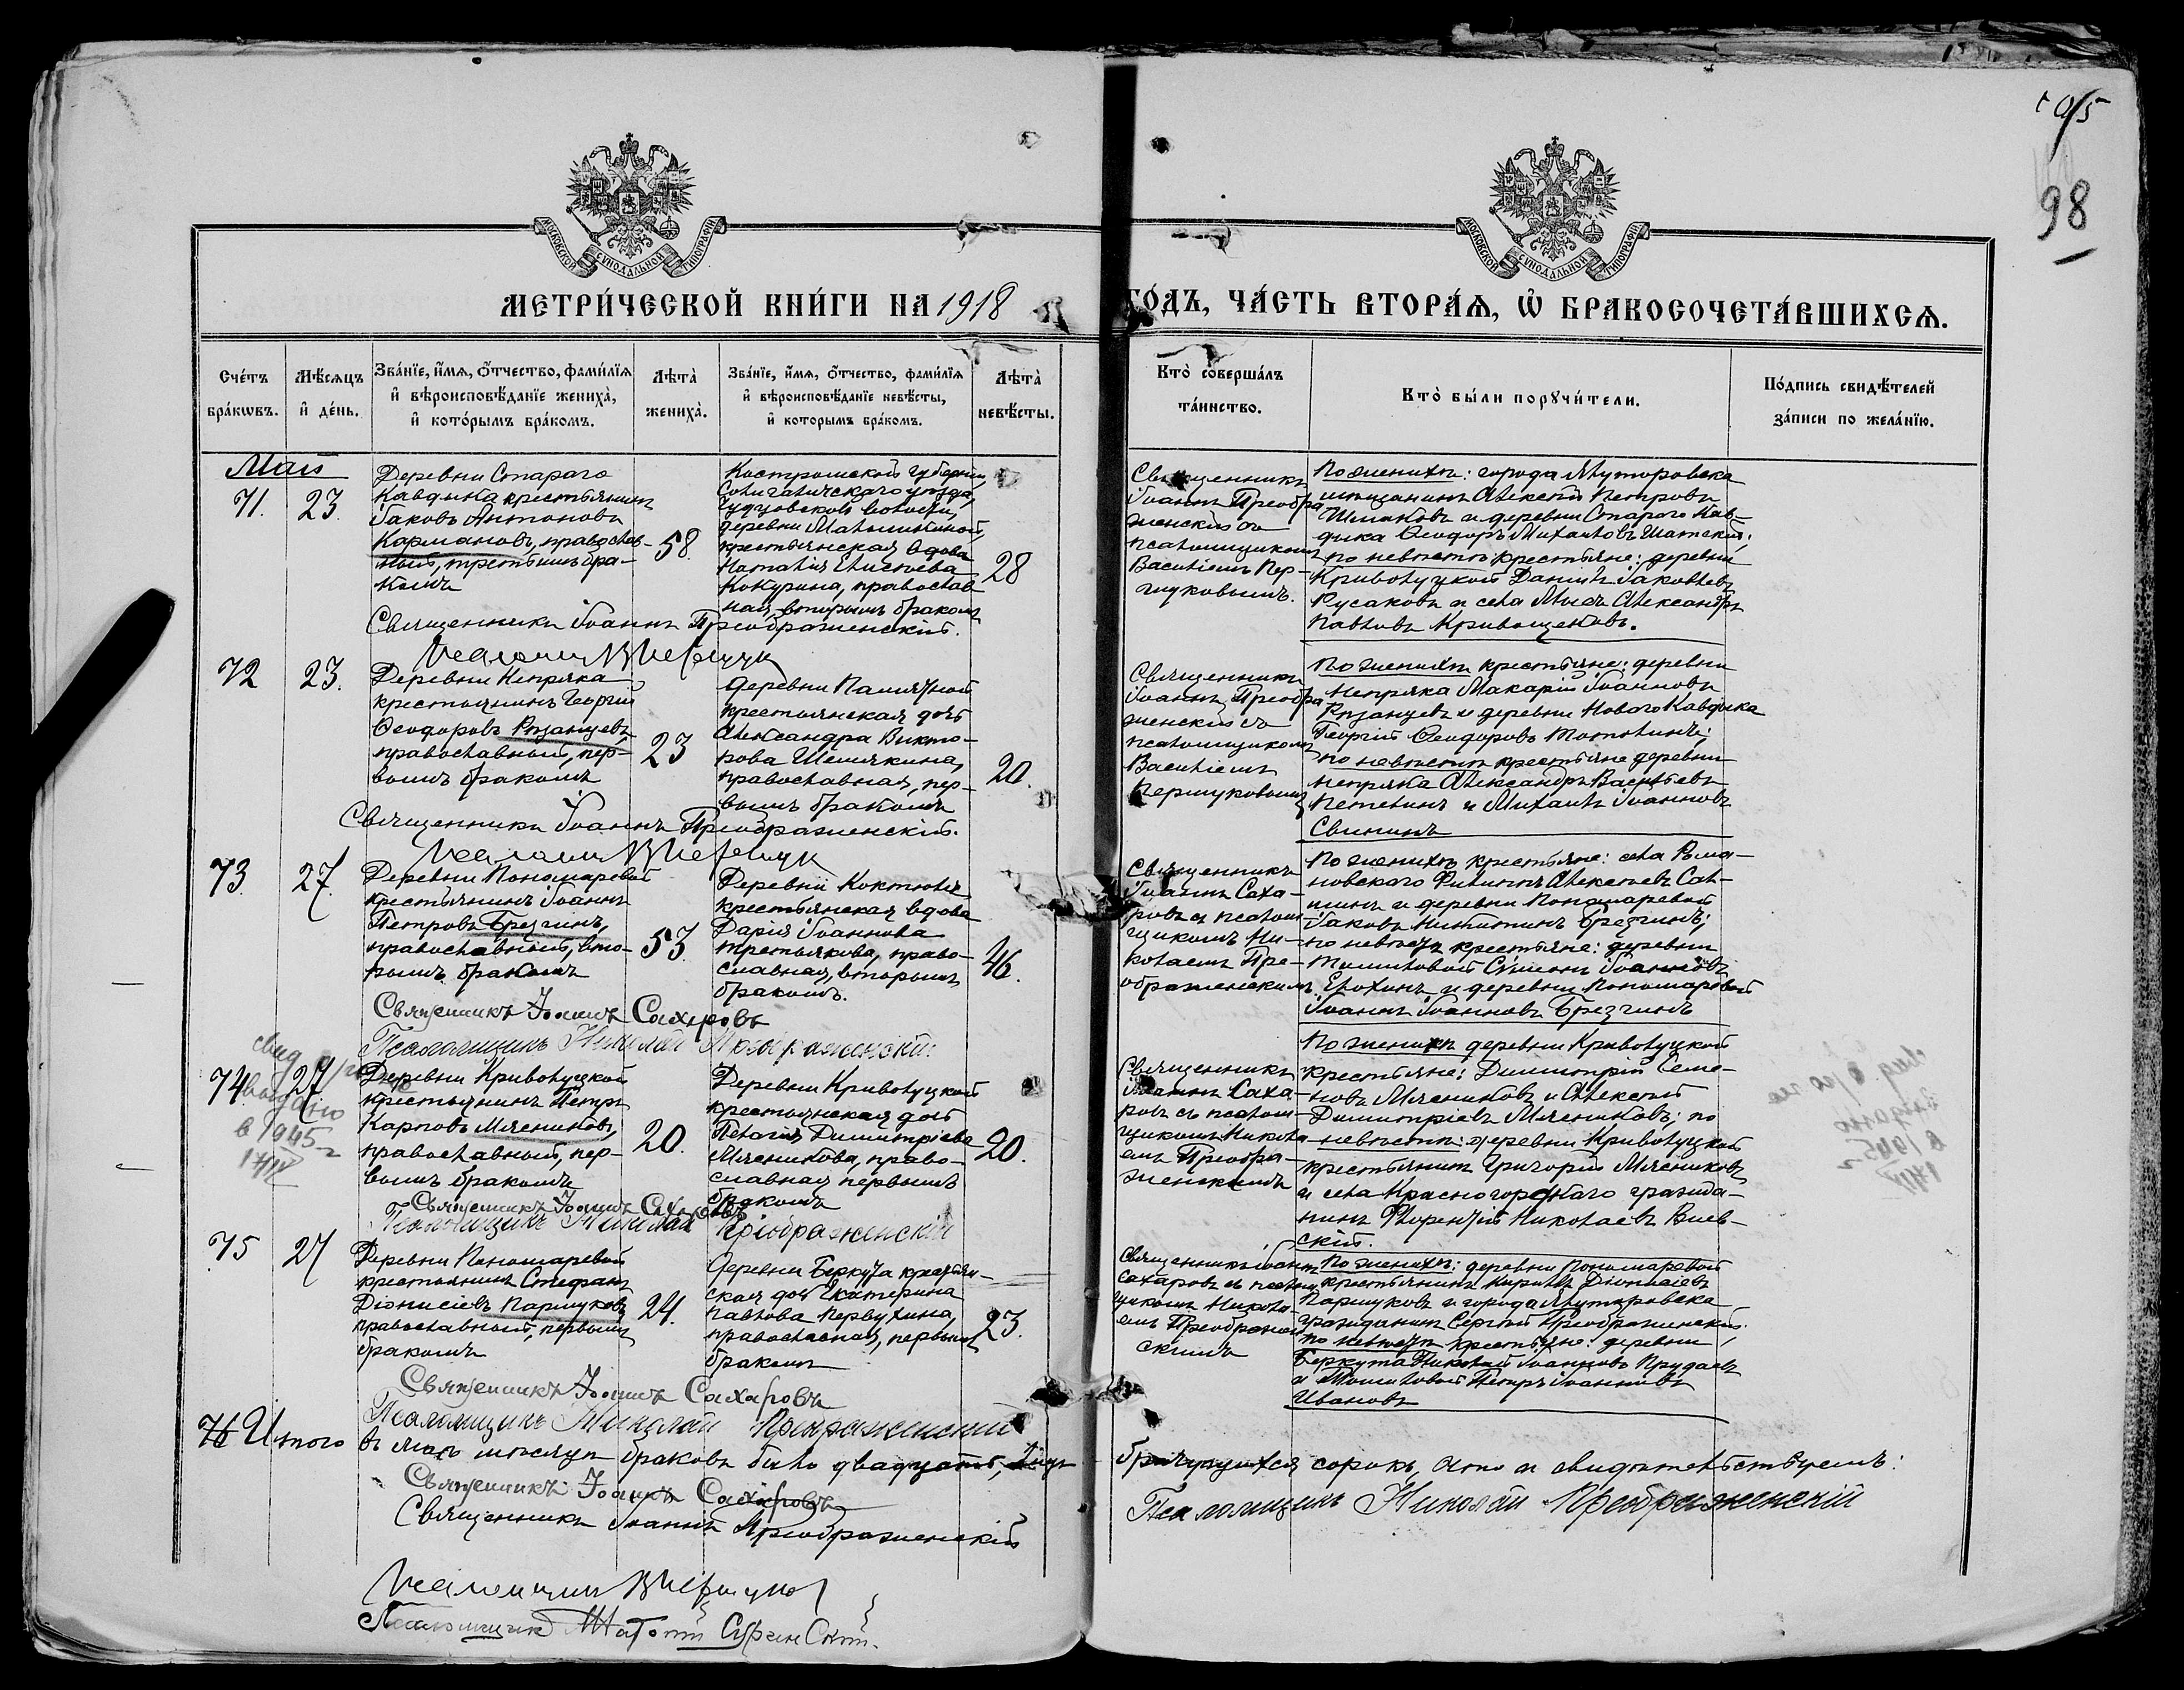 98
МОСКОВСКОЙ СѴНОДАЛЬНОЙ ТИПОГРАФІИ
МОСКОВСКОЙ СѴНОДАЛЬНОЙ ТИПОГРАФІИ
МЕТРИ́ЧЕСКОЙ КНИ́ГИ НА 1918 ГО́ДЪ, ЧА́СТЬ ВТОРА́Я, Ѽ БРАКОСОЧЕТА́ВШИХСЯ.
Сче́тъ
бра́кѡвъ.
Мѣ́сяцъ
и҆ де́нь.
Зва́нїе, и҆́мя, ѻ҆́тчество, фами́лїя
и҆ вѣроисповѣ́данїе жениха̀,
и҆ кото́рымъ бра́комъ.
Лѣта̀
жениха̀.
Зва́нїе, и҆́мя, ѻ҆́тчество, фами́лїя
и҆ вѣроисповѣ́данїе невѣ́сты,
и҆ которымъ бра́комъ.
Лѣта̀
невѣ́сты.
Кто̀ соверша́лъ
та́инство.
Кто̀ бы́ли порꙋчи́тели.
По́дпись свидѣ́телей
за́писи по жела́нїю.
Май
71.
23.
Деревни Стараго
Кавдыка крестьянинъ
Іаковъ Антоновъ
Кармановъ, православ-
ный, третьимъ бра-
комъ
58.
Костромской губерніи
Солигаличскаго уѣзда,
Чудцовской волости,
деревни
крестьянская вдова
Наталія Елисеева
Кокурина, православ
ная, вторымъ бракомъ
28
Священникъ
Іоаннъ Преобра
женскій съ
псаломщикомъ
Василіемъ Пер-
шуковымъ.
По женихѣ: города Ялуторовска
мѣщанинъ Алексѣй Петровъ
Шмаковъ и деревни Стараго Кав-
дыка Ѳеодоръ Михаиловъ Шатскій;
по невѣстѣ: крестьяне: деревни
Криволуцкой Даніилъ Іаковлевъ
Русаковъ и села Мысъ Александръ
Павловъ Кривощековъ.
Священникъ Іоаннъ Преображенскій.
Псаломщ В Першук
72
23.
Деревни Непряка
крестьянинъ Георгій
Ѳеодоровъ Рязанцевъ
православный, пер-
вымъ бракомъ
23
Деревни Памятной
крестьянская дочь
Александра Викто-
рова Шемякина,
православная, пер-
вымъ бракомъ
20.
Священникъ
Іоаннъ Преобра
женскій съ
псаломщикомъ
Василіемъ
Першуковымъ
По женихѣ крестьяне: деревни
Непряка Макарій Іоанновъ
Рязанцевъ и деревни Новаго Кавдыка
Георгій Ѳеодоровъ
по невѣстѣ крестьяне деревни
Непряка Александръ Васильевъ
Петелинъ и Михаилъ Іоанновъ
Свининъ
Священникъ Іоаннъ Преображенскій.
Псаломщ В Першук
73.
27.
Деревни Пономаревой
крестьянинъ Іоаннъ
Петровъ Брезгинъ,
православный, вто-
рымъ бракомъ
53.
Деревни Коктюля
крестьянская вдова
Дарія Іоаннова
Третьякова, право-
славная, вторымъ
бракомъ.
46.
Священникъ
Іоаннъ Саха-
ровъ съ псалом-
щикомъ Ни-
колаемъ Пре-
ображенскимъ.
По женихѣ крестьяне: села Рома-
новскаго Филиппъ Алексѣевъ
и деревни Пономаревой
Іаковъ Брезгинъ;
по невѣстѣ крестьяне: деревни
Томиловой Сѵмеонъ Іоанновъ
Елохинъ и деревни Пономаревой
Іоаннъ Іоанновъ Брезгинъ
Священникъ Іоаннъ Сахаровъ
Псаломщикъ Николай Преображенскій.
74.
27.
Свид
выдано
в 1945 г
Деревни Криволуцкой
крестьянинъ Петръ
Карповъ Мясниковъ,
православный, пер-
вымъ бракомъ
20.
Деревни Криволуцкой
крестьянская дочь
Пелагія Димитріева
Мясникова, право-
славная первымъ
бракомъ
20.
Священникъ
Іоаннъ Саха-
ровъ съ псалом-
щикомъ Никола
емъ Преобра-
женскимъ
По женихѣ деревни Криволуцкой
крестьяне: Димитрій Семе-
новъ Мясниковъ и Алексѣй
Димитріевъ Мясниковъ; по
невѣстѣ: деревни Криволуцкой
крестьянинъ Григорій Мясниковъ
и села Красногорскаго гражда-
нинъ Флорентій Николаевъ Виев-
скій.
Священникъ Іоаннъ Сахаровъ
Псаломщикъ Николай Преображенскій
75
27
Деревни Пономаревой
крестьянинъ Стефанъ
Діонисіевъ Паршуковъ
православный, первымъ
бракомъ
24.
Деревни Беркута крестьян-
ская дочь Екатерина
Павлова Первухина,
православная, первымъ
бракомъ
23.
Священникъ Іоаннъ
Сахаровъ съ псалом
щикомъ Никола-
емъ Преображен
скимъ
По женихѣ: деревни Пономаревой
крестьянинъ Кириллъ Діонисіевъ
Паршуковъ и города Ялуторовска
гражданинъ Сергѣй Преображенскій.
по невѣстѣ крестьяне: деревни
Беркута Николай Іоанновъ Прудаевъ
и Томиловой Петръ Іоанновъ
Ивановъ
Священникъ Іоаннъ Сахаровъ
Псаломщикъ Николай Преображенский
76 Итого в маѣ мѣсяцѣ браковъ было двадцать, лицъ брачущихся сорокъ, въ чемъ и свидѣтельствуемъ:
Священникъ Іоаннъ Сахаровъ
Псаломщикъ Николай Преображенскій
Священникъ Іоаннъ Преображенскій
Псаломщик В Першуков
Псаломщик